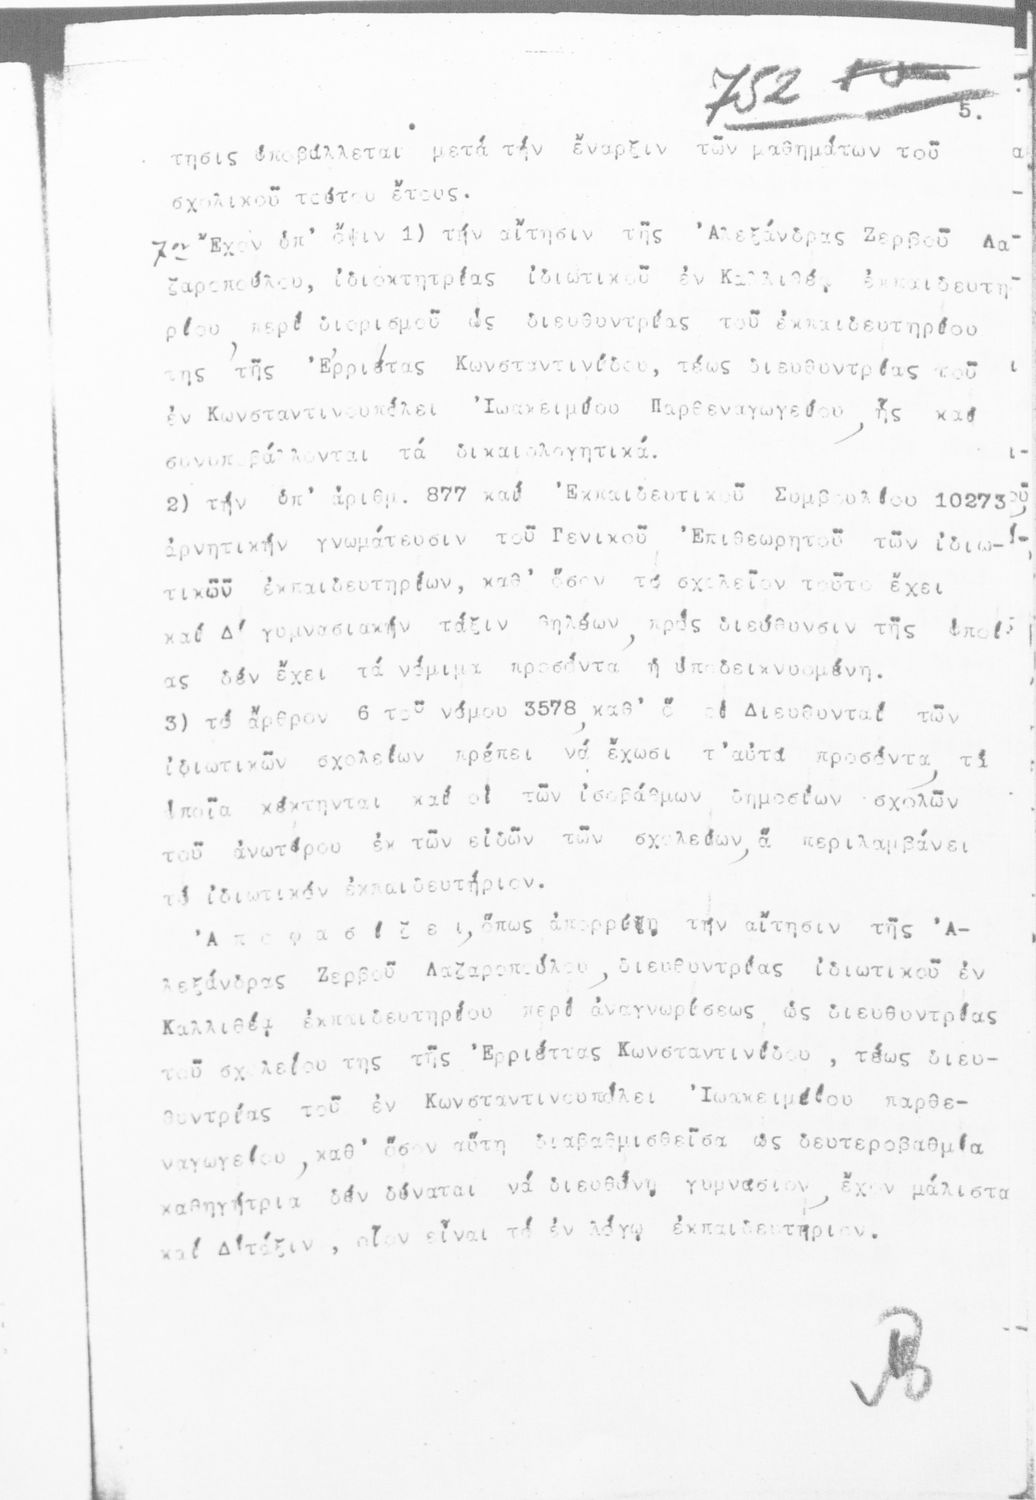 752
5.
τησις ὑποβάλλεται μετά τήν ἔναρξιν τῶν μαθημάτων τοῦ
σχολικοῦ τούτου ἔτους.
7ον Ἔχον ὑπ' ὄψιν 1) τήν αἴτησιν τῆς Ἀλεξάνδρας Ζερβοῦ Λα-
ζαροπούλου, ἰδιοκτητρίας ἰδιωτικοῦ ἐν Καλλιθέᾳ ἐκπαιδευτη-
ρίου, περί διορισμοῦ ὡς διευθυντρίας τοῦ ἐκπαιδευτηρίου
της τῆς Ἑρριέτας Κωνσταντινίδου, τέως διευθυντρίας τοῦ
ἐν Κωνσταντινουπόλει Ἰωακειμίου Παρθεναγωγείου, ἧς καί
συνυποβάλλονται τά δικαιολογητικά.
2) τήν ὑπ' ἀριθμ. 877 καί Ἐκπαιδευτικοῦ Συμβουλίου 10273
ἀρνητικήν γνωμάτευσιν τοῦ Γενικοῦ Ἐπιθεωρητοῦ τῶν ἰδιω-
τικῶν ἐκπαιδευτηρίων, καθ' ὅσον τό σχολεῖον τοῦτο ἔχει
καί Δ! γυμνασιακήν τάξιν θηλέων, πρός διεύθυνσιν τῆς ὁποί
ας δέν ἔχει τά νόμιμα προσόντα ἡ ὑποδεικνυομένη.
3) τό ἄρθρον 6 τοῦ νόμου 3578, καθ' ὅ οἱ Διευθυνταί τῶν
ἰδιωτικῶν σχολείων πρέπει νά ἔχωσι τ'αὐτά προσόντα, τά
ὁποῖα κέκτηνται καί οἱ τῶν ἰσοβάθμων δημοσίων σχολῶν
τοῦ ἀνωτέρου ἐκ τῶν εἰδῶν τῶν σχολείων, ἅ περιλαμβάνει
τό ἰδιωτικόν ἐκπαιδευτήριον.
Ἀ π ο φ α σ ί ζ ε ι, ὅπως ἀπορρίψῃ τήν αἴτησιν τῆς Ἀ-
λεξάνδρας Ζερβοῦ Λαζαροπούλου, διευθυντρίας ἰδιωτικοῦ ἐν
Καλλιθέᾳ ἐκπαιδευτηρίου περί ἀναγνωρίσεως ὡς διευθυντρίας
τοῦ σχολείου της τῆς Ἑρριέττας Κωνσταντινίδου, τέως διευ-
θυντρίας τοῦ ἐν Κωνσταντινουπόλει Ἰωακειμείου παρθε-
ναγωγείου, καθ' ὅσον αὕτη διαβαθμισθεῖσα ὡς δευτεροβαθμία
καθηγήτρια δέν δύναται νά διευθύνῃ γυμνάσιον, ἔχον μάλιστα
καί Δ!τάξιν, οἷον εἶναι τό ἐν λόγῳ ἐκπαιδευτήριον.